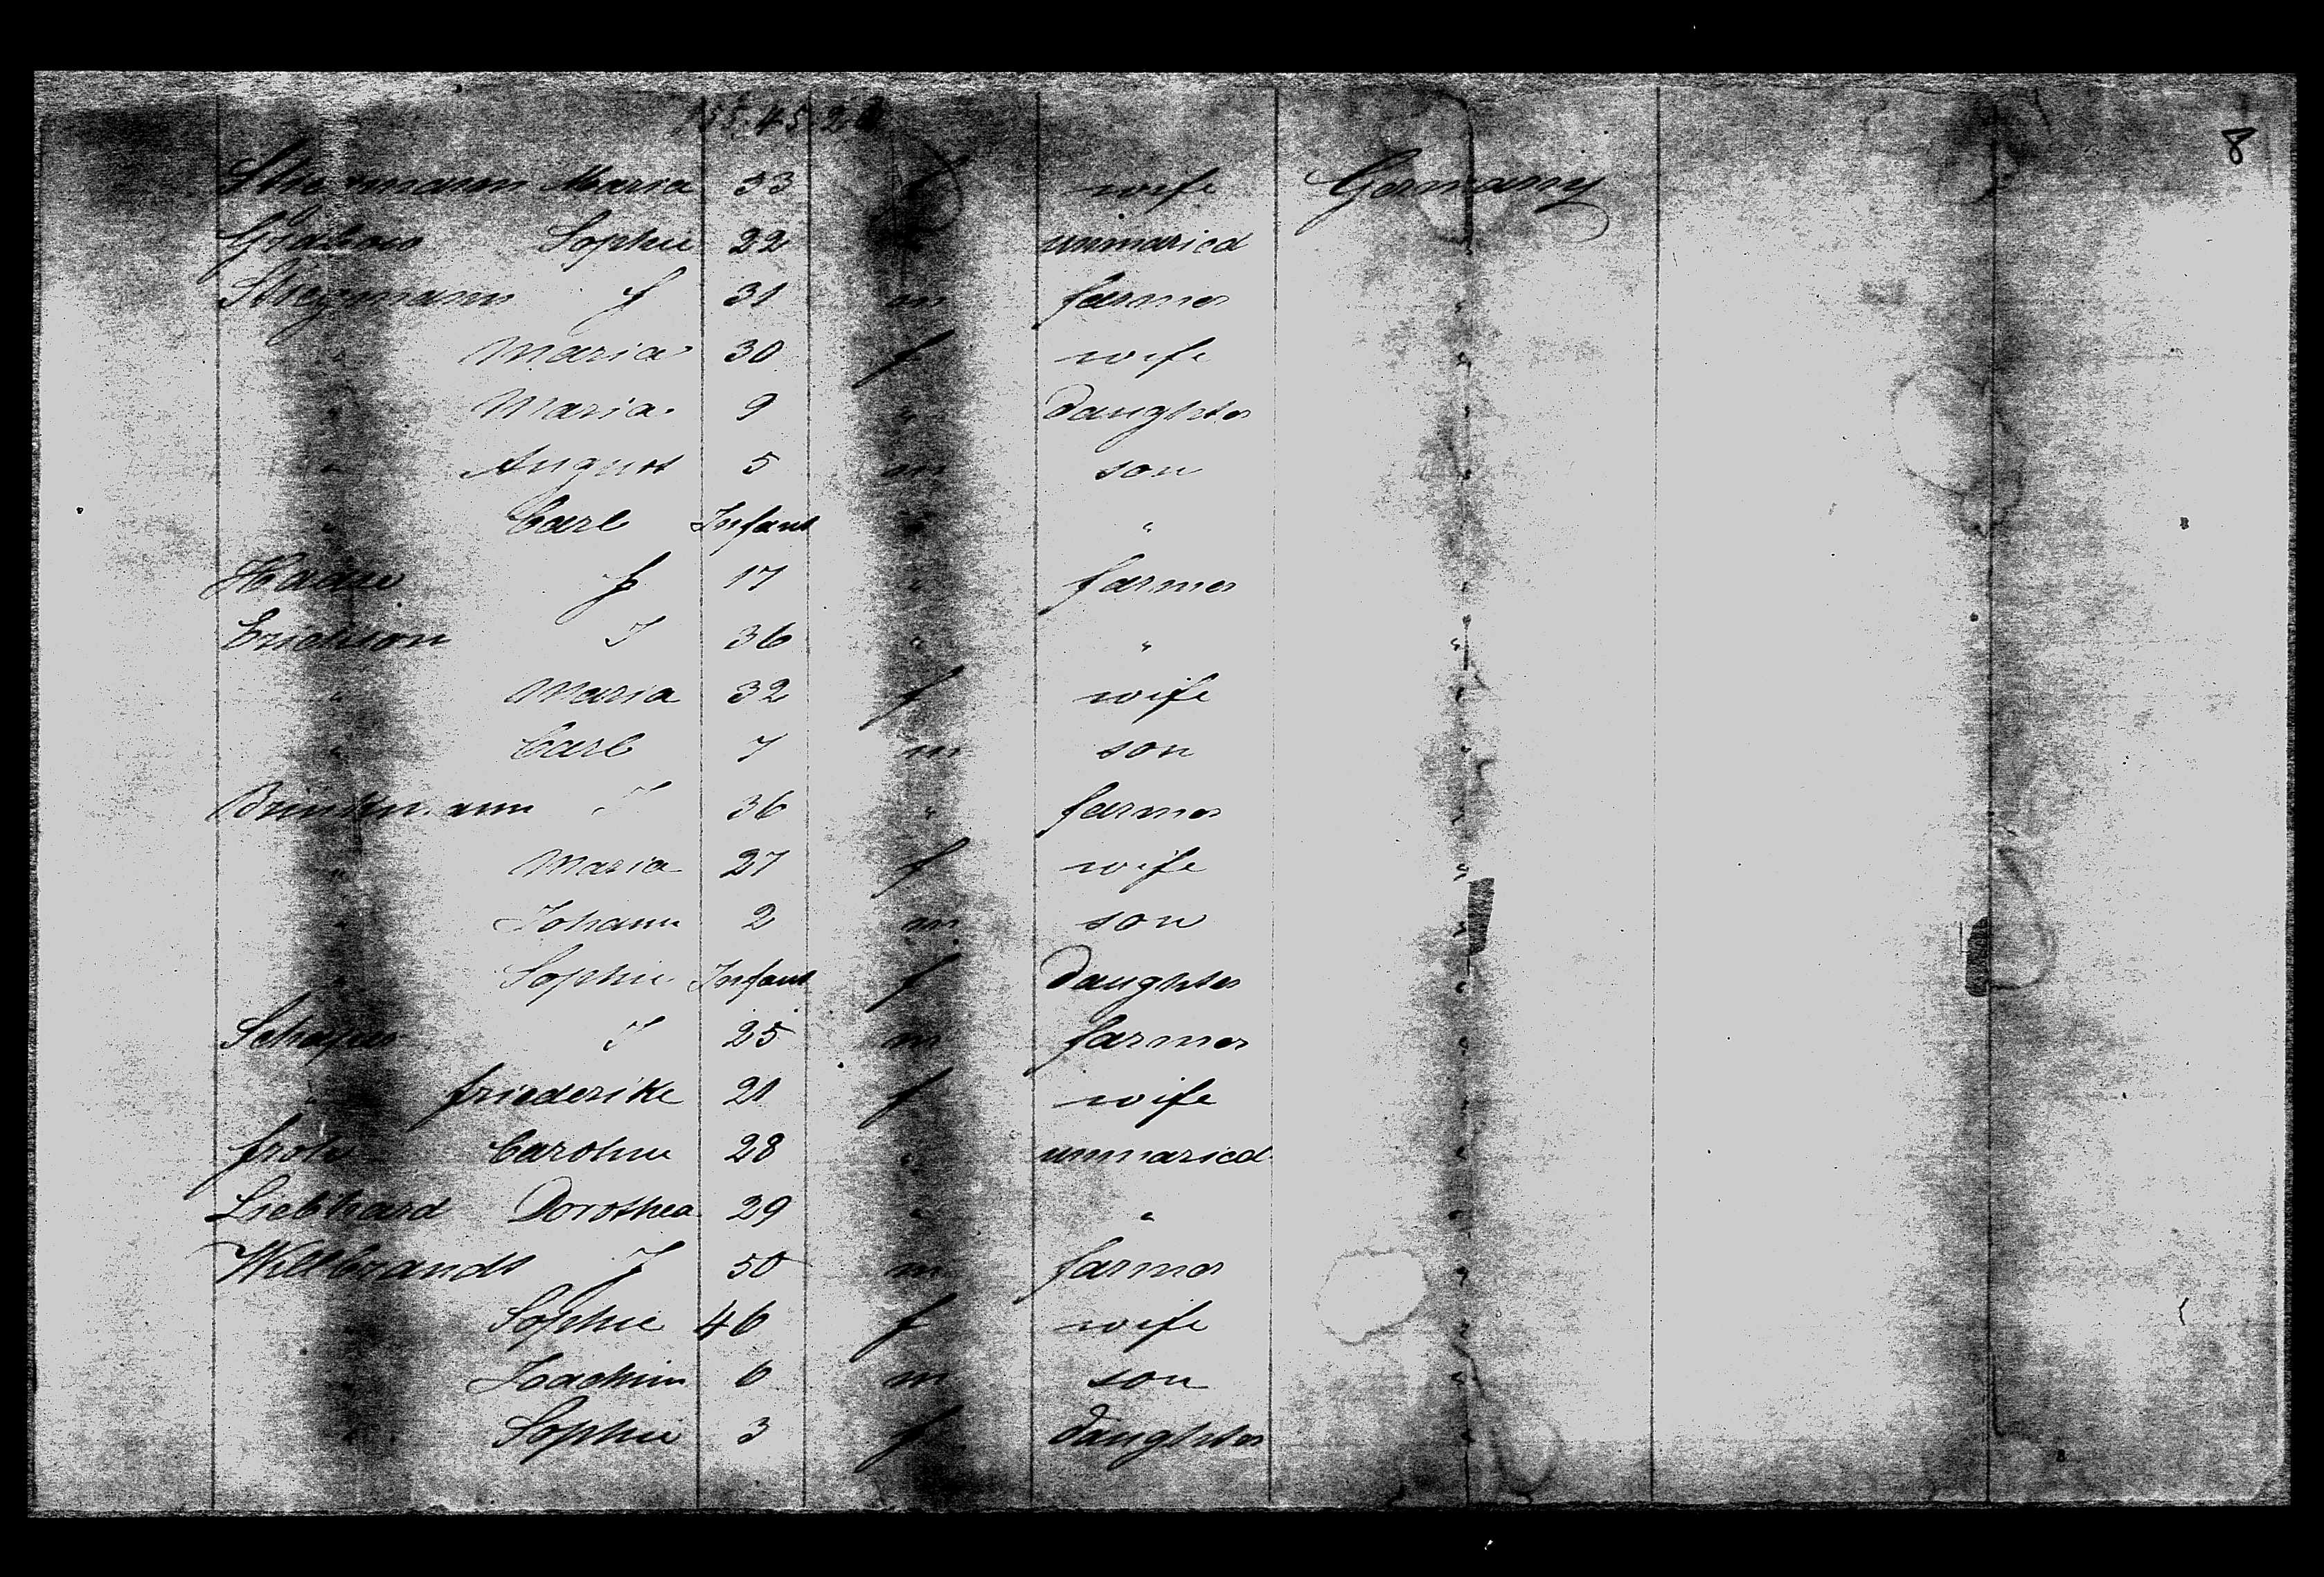 8
Stiegmann Maria 33 f wife Germany
Grabow Sophie 22 " unmaried
Stiegmann J 31 m farmer "
" Maria 30 f wife "
" Maria 9 " Daughter "
" August 5 m son "
" Carl Infant " "
J 17 " farmer "
Erichson J 36 " " "
" Maria 32 f wife "
" Carl 7 m son "
Brinkmann J 36 " farmer "
" Maria 27 f wife "
" Johann 2 m son "
" Sophie Infant f Daughter "
Schaper J 25 m farmer "
" Friederike 21 f wife "
Froh Caroline 28 " unmaried "
Liebhard Dorothea 29 " " "
Wilbrandt J 50 m farmer "
" Sophie 46 f wife "
" Joachim 6 m son "
" Sophie 3 f Daughter "